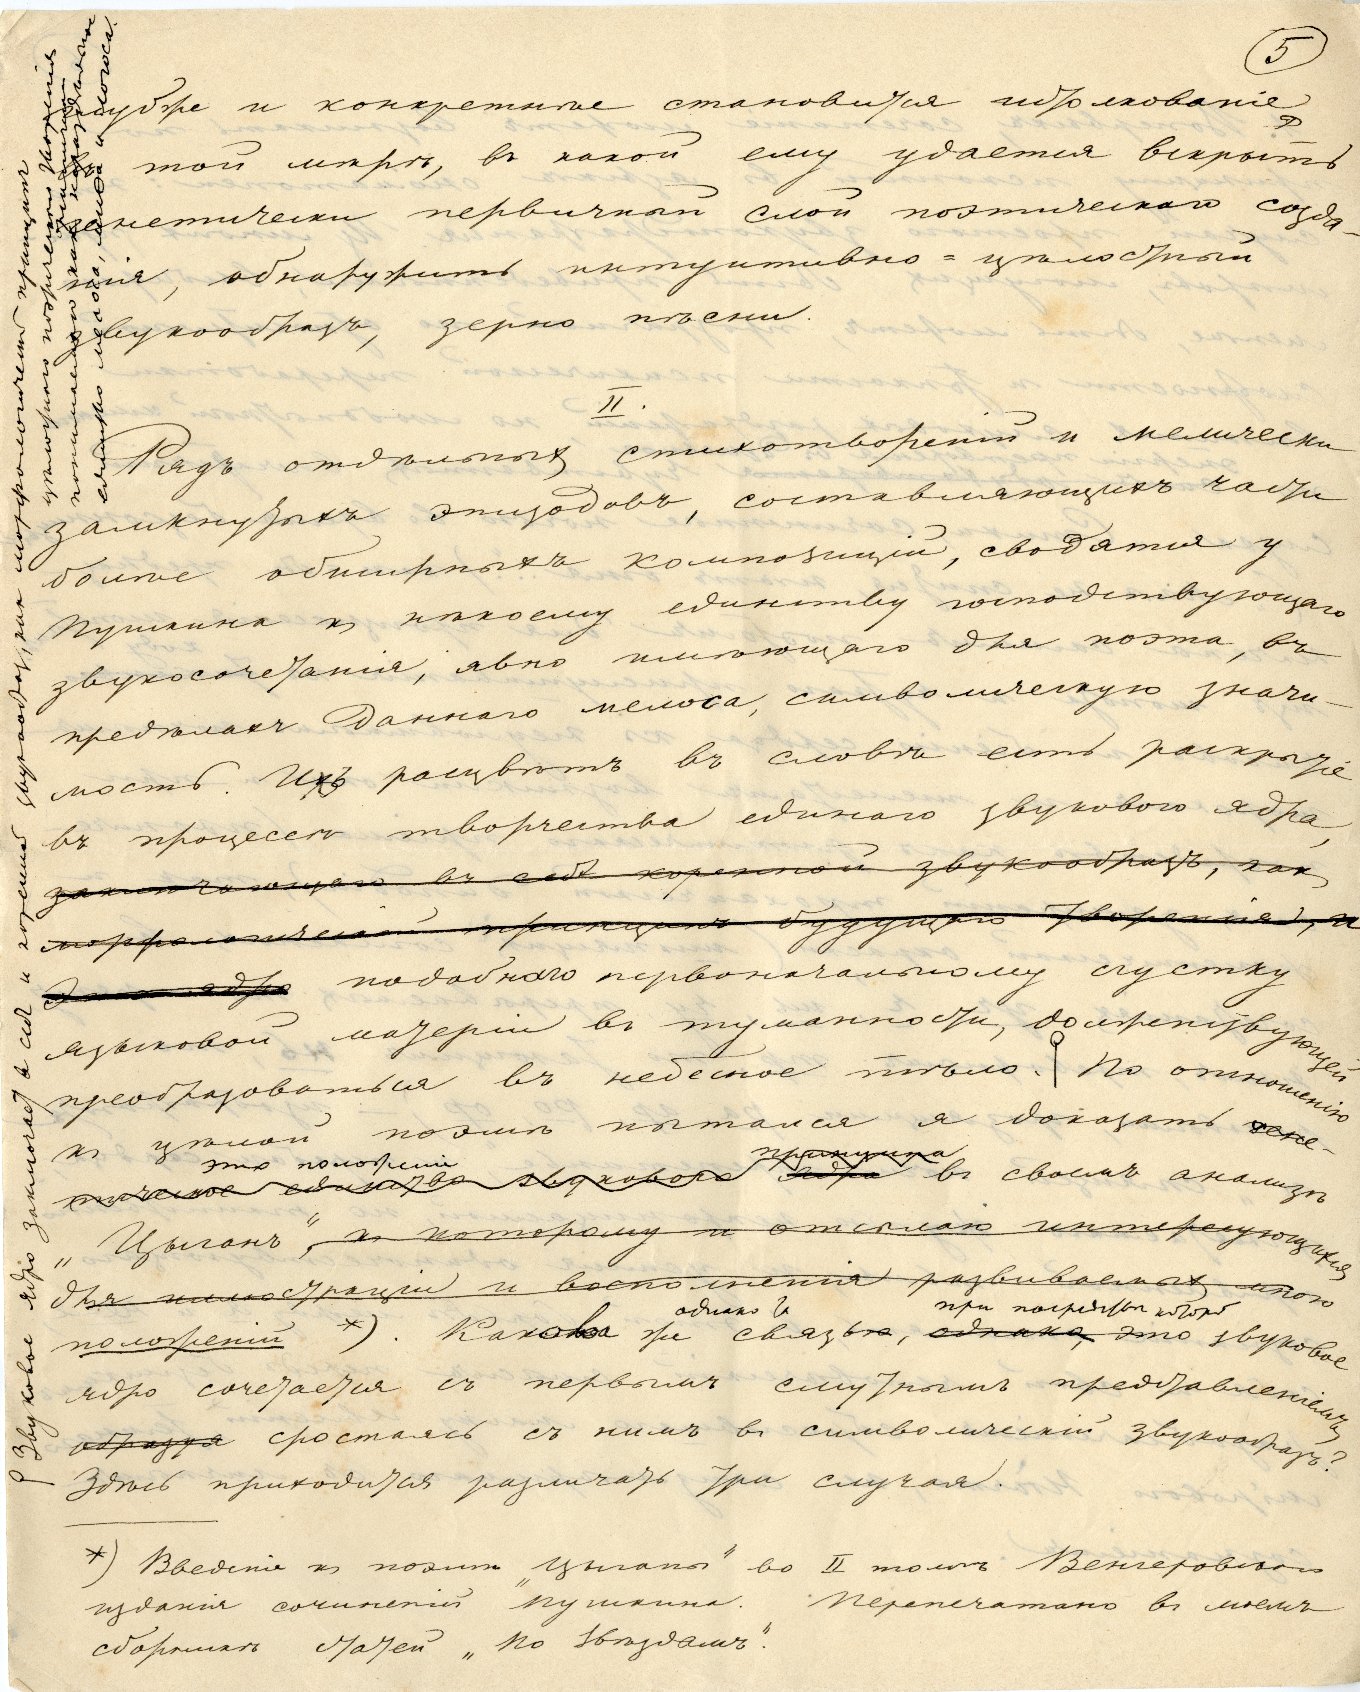 5
глубже и конкретнѣе становится истолкованіе
въ той мѣрѣ, въ какой ему удается вскрыть
генетически первичный слой поэтическаго созда-
нія, обнаружить интуитивно-цѣлостный
звукообразъ, зерно пѣсни.
II.
Рядъ отдѣльныхъ стихотвореній и мелически
замкнутыхъ эпизодовъ, составляющихъ части
болѣе обширныхъ композицій, сводятся у
Пушкина къ нѣкоему единству господствующаго
звукосочетанія, явно имѣющаго для поэта, въ
предѣлахъ даннаго мелоса, символическую значи-
мость. Ихъ расцвѣтъ въ словѣ есть раскрытіе
въ процессѣ творчества единаго звукового ядра,
заключающаго въ себѣ коренной звукообразъ, какъ
морфологическій принципъ будущаго творенія, и
Это ядро подобнаго первоначальному сгустку
языковой матеріи въ туманности, долженствующей
преобразоваться въ небесное тѣло. По отношенію
къ цѣлой поэмѣ пытался я доказать гене-
это положеніе принципа
тическое единство звукового ядра въ своемъ анализѣ
„Цыганъ", къ которому и отсылаю интересующихся
для иллюстраціи и восполненія развиваемыхъ мною
однако при посредствѣ которой
положеній *). Какова же связь, однако, это звуковое
ядро сочетается съ первымъ смутнымъ представленіемъ,
образуя сростаясь съ нимъ въ символическій звукообразъ?
Здѣсь приходится различать три случая.
*) Введеніе къ поэмѣ „Цыганы" во II томѣ Венгеровскаго
изданія сочиненій Пушкина. Перепечатано въ моемъ
сборникѣ статей „По Звѣздамъ".
Звуковое ядро заключаетъ въ себѣ и коренной звукообразъ, какъ морфологическій принципъ
цѣлостнаго поэтическаго творенія
понимаемаго какъ нераздѣльное
единство мелоса, мифа и логоса.